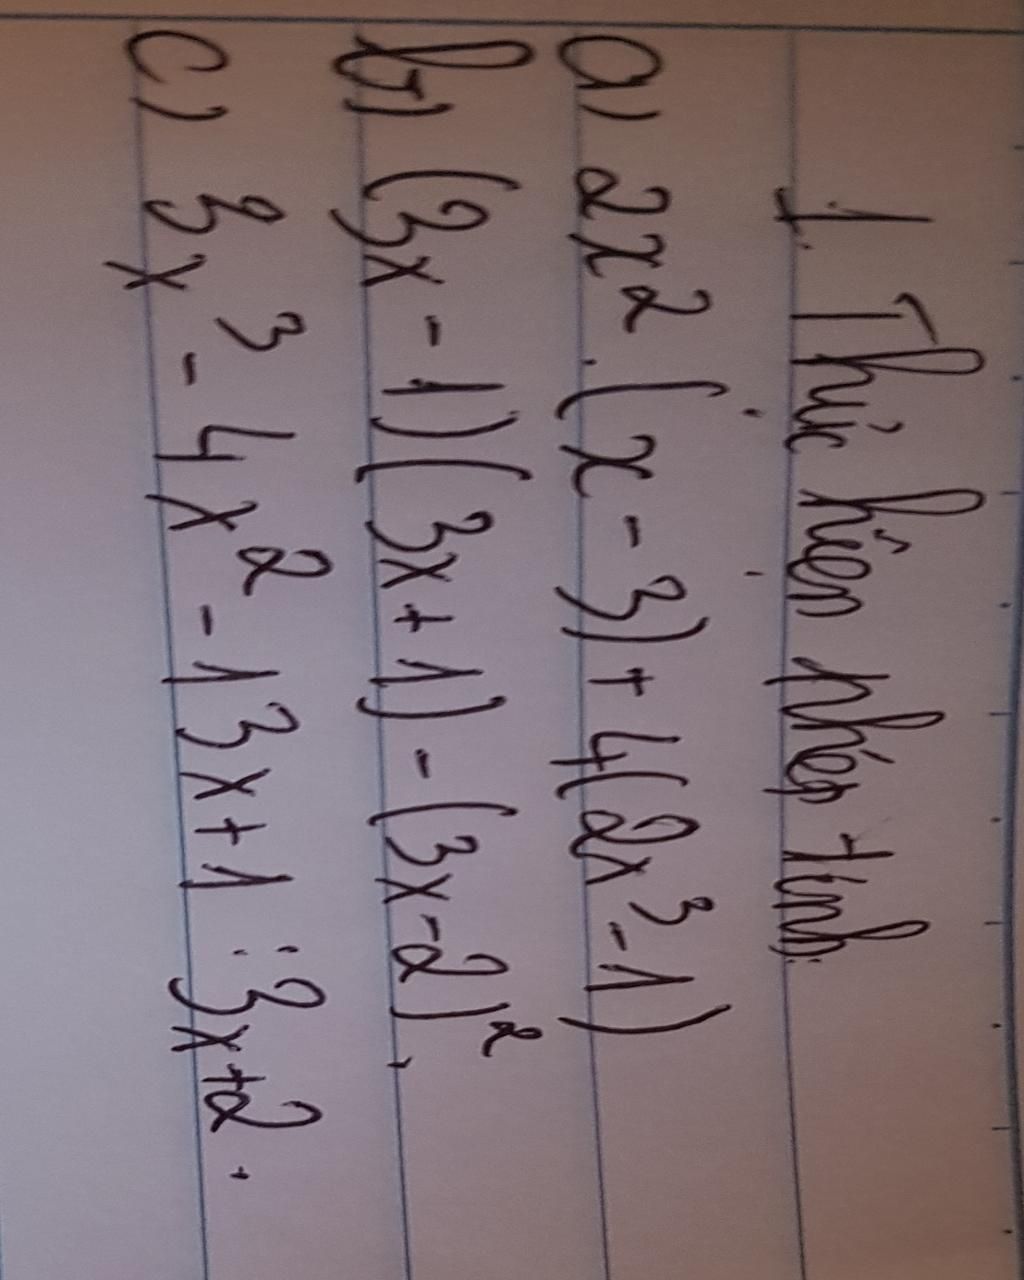 1. Thực hiện phép tính.
a) 2x². (x - 3) + 4(2x³ - 1)
b) (3x - 1)(3x + 1) - (3x - 2)².
c) 3x³ - 4x² - 13x + 1 : 3x + 2.